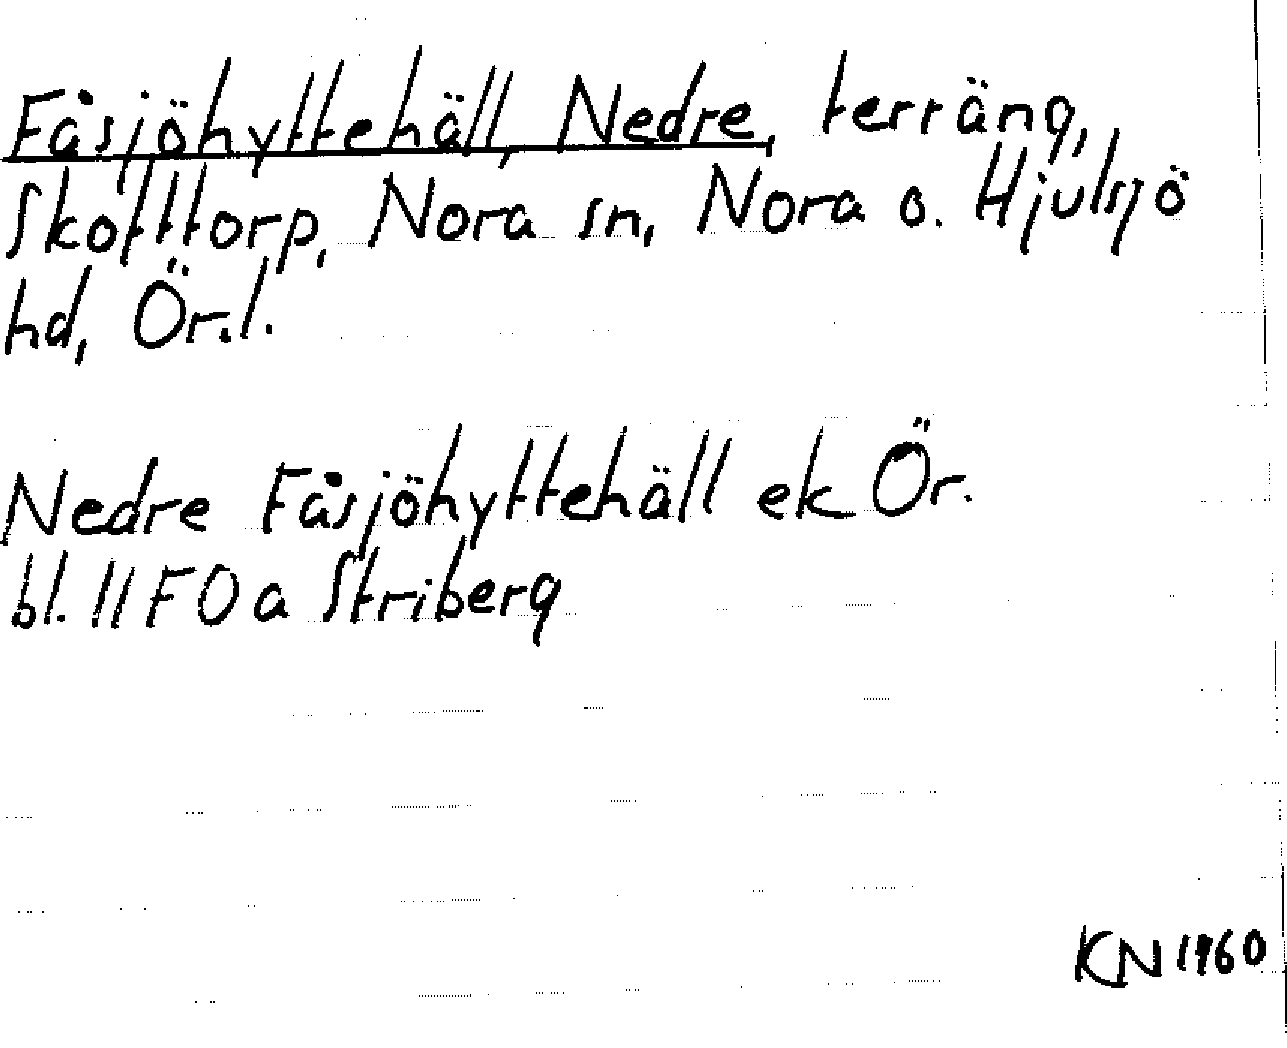 Fåsjöhyttehäll, Nedre, terräng,
Skofttorp, Nora sn, Nora o. Hjulsjö
hd, Ör.l.
Nedre Fåsjöhyttehäll ek Ör.
bl. 11 F 0 a Striberg
KN 1960